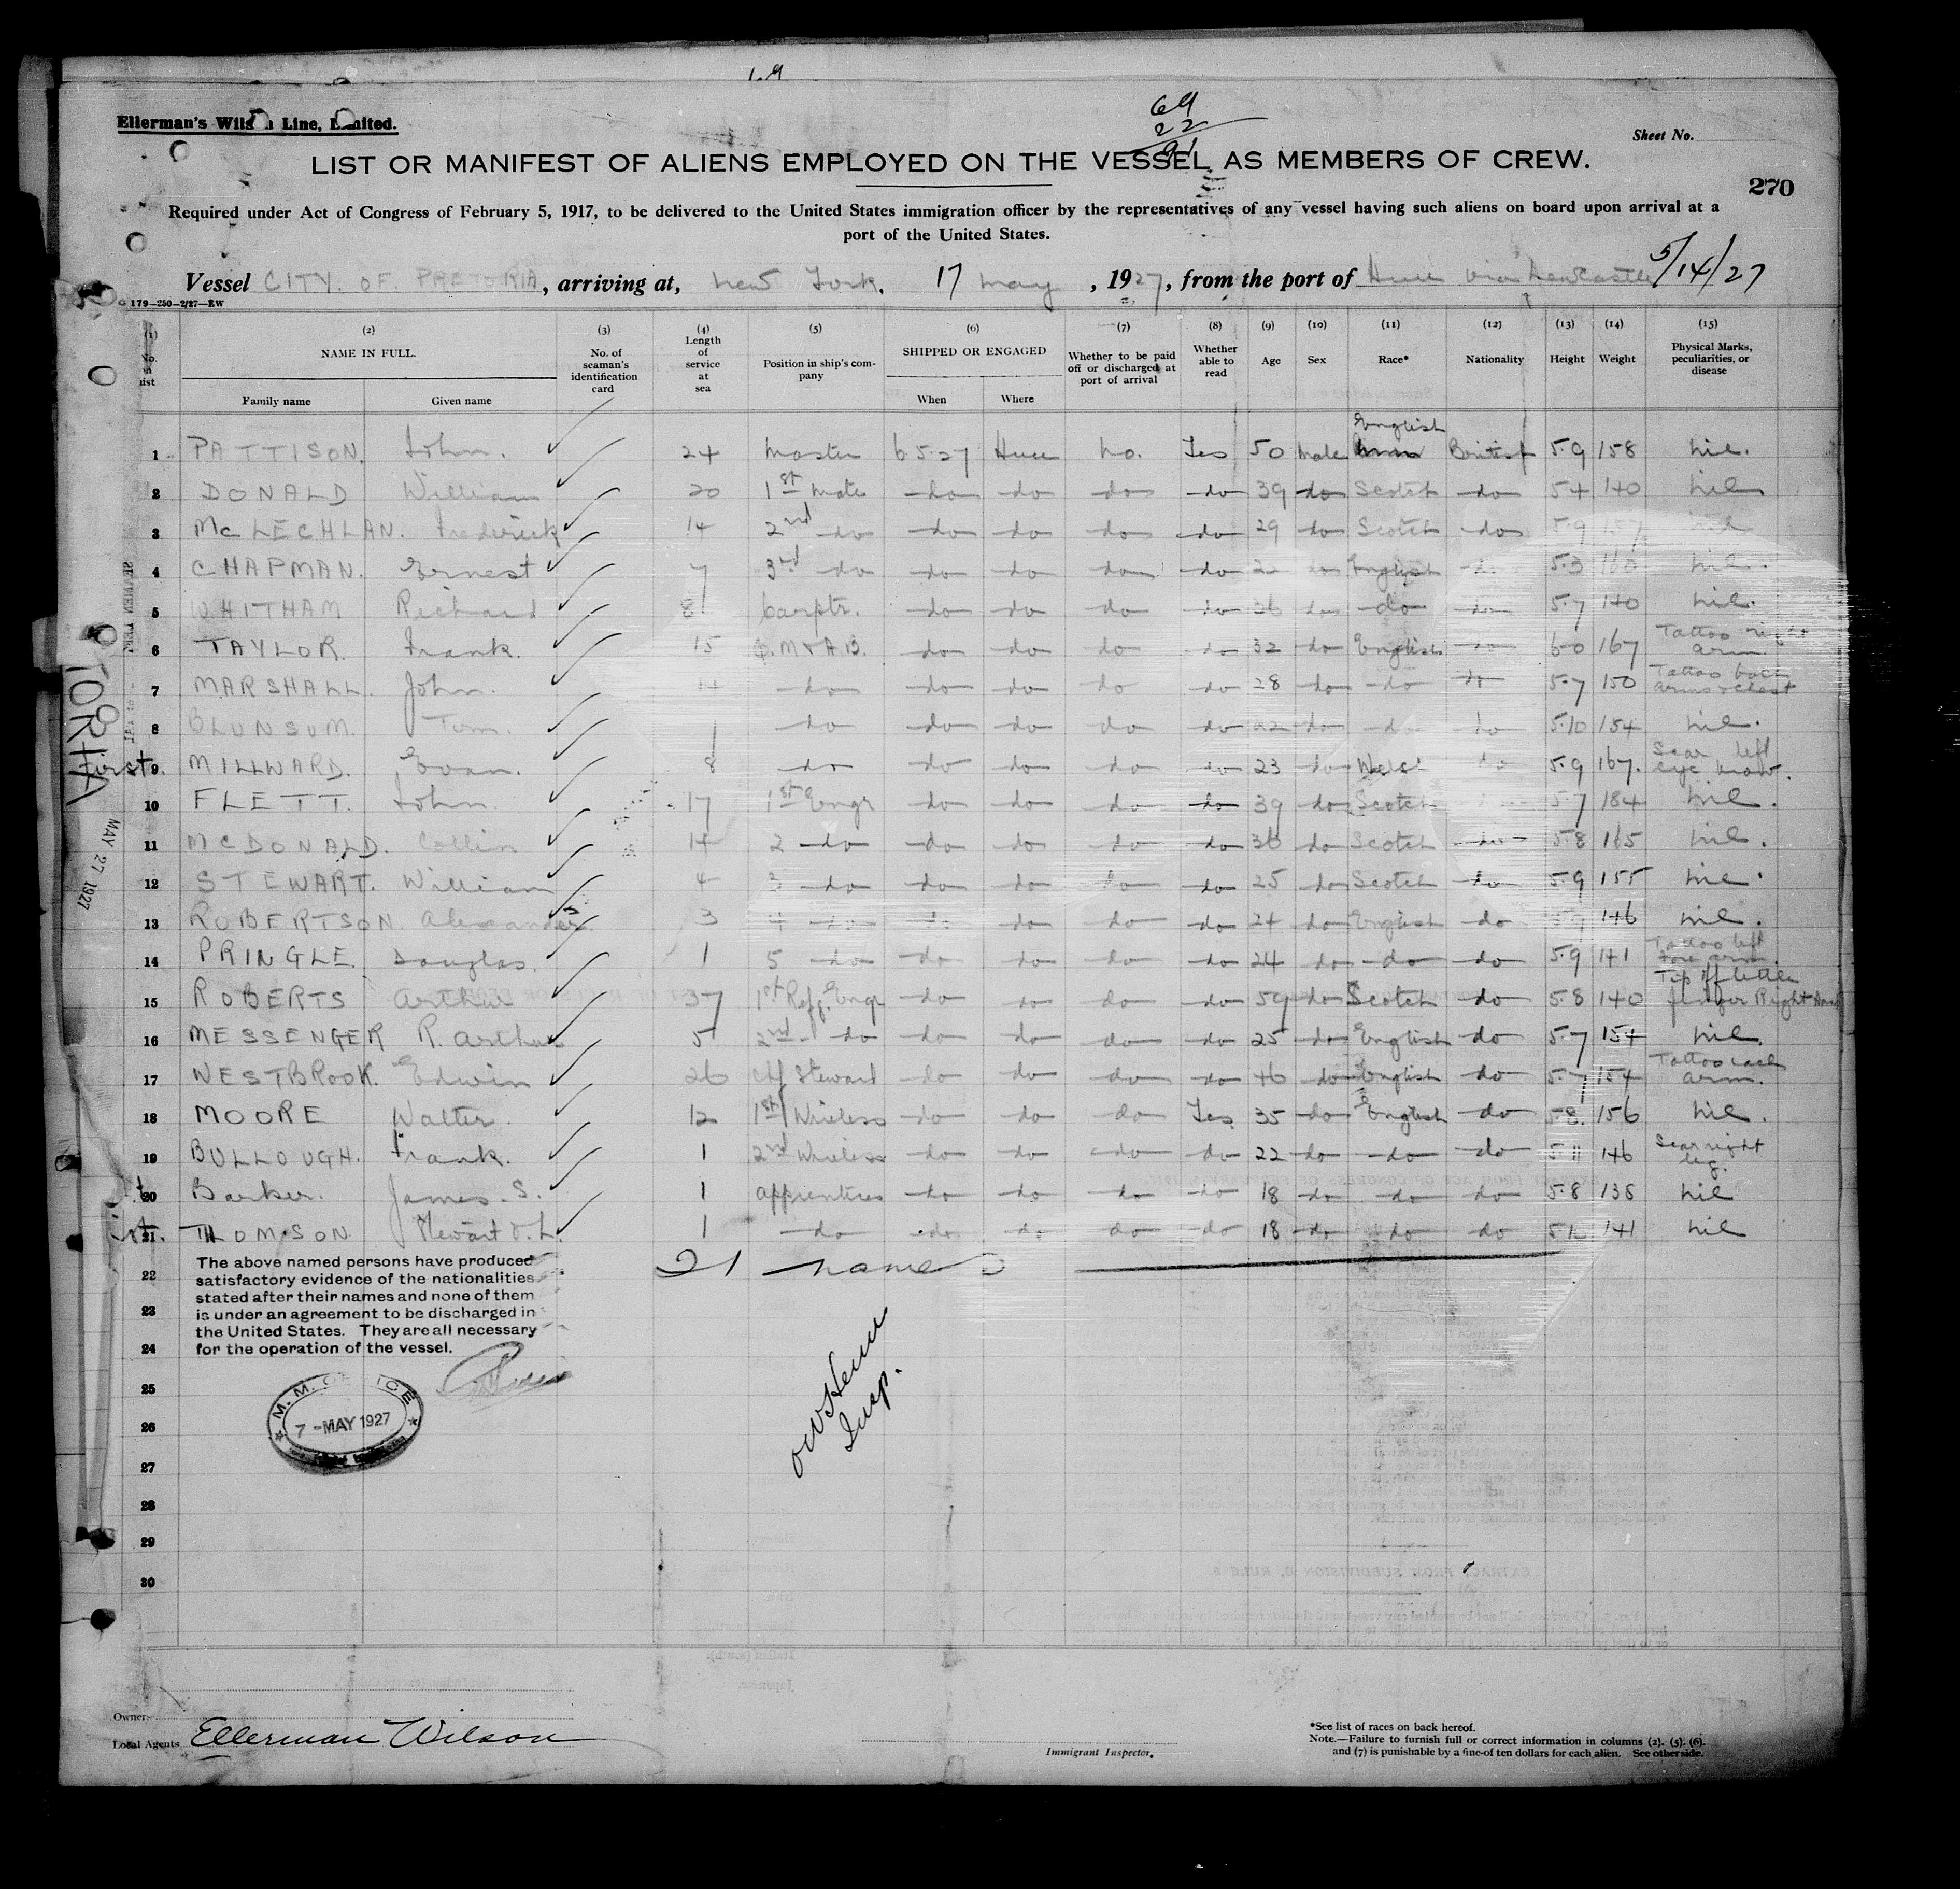 1.9
Ellerman's Wilson Line, Limited.
69
22
91
Sheet No.
LIST OR MANIFEST OF ALIENS EMPLOYED ON THE VESSEL AS MEMBERS OF CREW.
270
Required under Act of Congress of February 5, 1917, to be delivered to the United States immigration officer by the representatives of any vessel having such aliens on board upon arrival at a
port of the United States.
Vessel CITY. OF. PRETORIA, arriving at, New York. 17 May, 1927, from the port of Hull via Newcastle 5/14/27
179-250-2/27-EW
(1) (2) (3) (4) (5) (6) (7) (8) (9) (10) (11) (12) (13) (14) (15)
No. in list NAME IN FULL. Family name Given name No. of seaman's identification card Length of service at sea Position in ship's company SHIPPED OR ENGAGED When Where Whether to be paid off or discharged at port of arrival Whether able to read Age Sex Race* Nationality Height Weight Physical Marks, peculiarities, or disease
1 PATTISON. John. 24 Master 6 5.27 Hull No. Yes 50 Male English British 5.9 158 Nil.
2 DONALD William 20 1st Mate do do do do 39 do Scotch do 5.4 140 Nil
3 McLECHLAN. Frederick 14 2nd do do do do do 29 do Scotch do 5.9 157
4 CHAPMAN. Ernest 7 3rd do do do do do do English do 5.3 160 Nil.
5 WHITHAM Richard 8 Carptr. do do do do 36 do do do 5.7 140 Nil.
6 TAYLOR. Frank. 15 Q.M & A.B. do do do do 32 do English do 6-0 167 Tattoo right arm
7 MARSHALL. John. 14 do do do do do 28 do do do 5.7 150 Tattoo both arms & chest
8 BLUNSUM. Tom. 1 do do do do do 22 do do do 5.10 154 Nil.
9 MILLWARD. Evan. 8 do do do do do 23 do Welsh do 5.9 167. Scar left eye brow.
10 FLETT. John. 17 1st Engr do do do do 39 do Scotch 5.7 184 Nil.
11 McDONALD. Collin 14 2 do do do do do 36 do Scotch do 5.8 165 Nil.
12 STEWART. William 4 3 do do do do do 25 do Scotch do 5.9 155 Nil
13 ROBERTSON Alexander 3 4 do do do do do 24 do English do 146 Nil.
14 PRINGLE Douglas. 1 5 do do do do do 24 do do do 5.9 141 Tattoo left fore arm.
15 ROBERTS Arthur 37 1st Refg. Engr do do do do 59 do Scotch do 5.8 140 Tip off little finger Right Hand
16 MESSENGER R. Arthur 5 2nd do do do do do 25 do English do 5.7 154 Nil.
17 WESTBROOK. Edwin 26 Chf Steward do do do do 46 do English do 5.7 154 Tattoo each arm.
18 MOORE Walter. 12 1st Wireless do do do Yes 35 do English do 5.8. 156 Nil.
19 BULLOUGH. Frank. 1 2nd Wireless do do do do 22 do do do 5.11 146 Scar right leg.
20 Barker. James. S. 1 apprentice do do do do 18 do do do 5.8 138 Nil
21 THOMSON. Stewart 1 do do do do do 18 do do do 141 Nil
22 21 names
The above named persons have produced
satisfactory evidence of the nationalities
stated after their names and none of them
is under an agreement to be discharged in
the United States. They are all necessary
for the operation of the vessel.
23
24
25
26
27
28
29
30
7-MAY 1927
Insp.
MAY 27 1927
Owner
Local Agents Ellerman Wilson
Immigrant Inspector.
*See list of races on back hereof.
Note.—Failure to furnish full or correct information in columns (2), (5), (6),
and (7) is punishable by a fine of ten dollars for each alien. See other side.